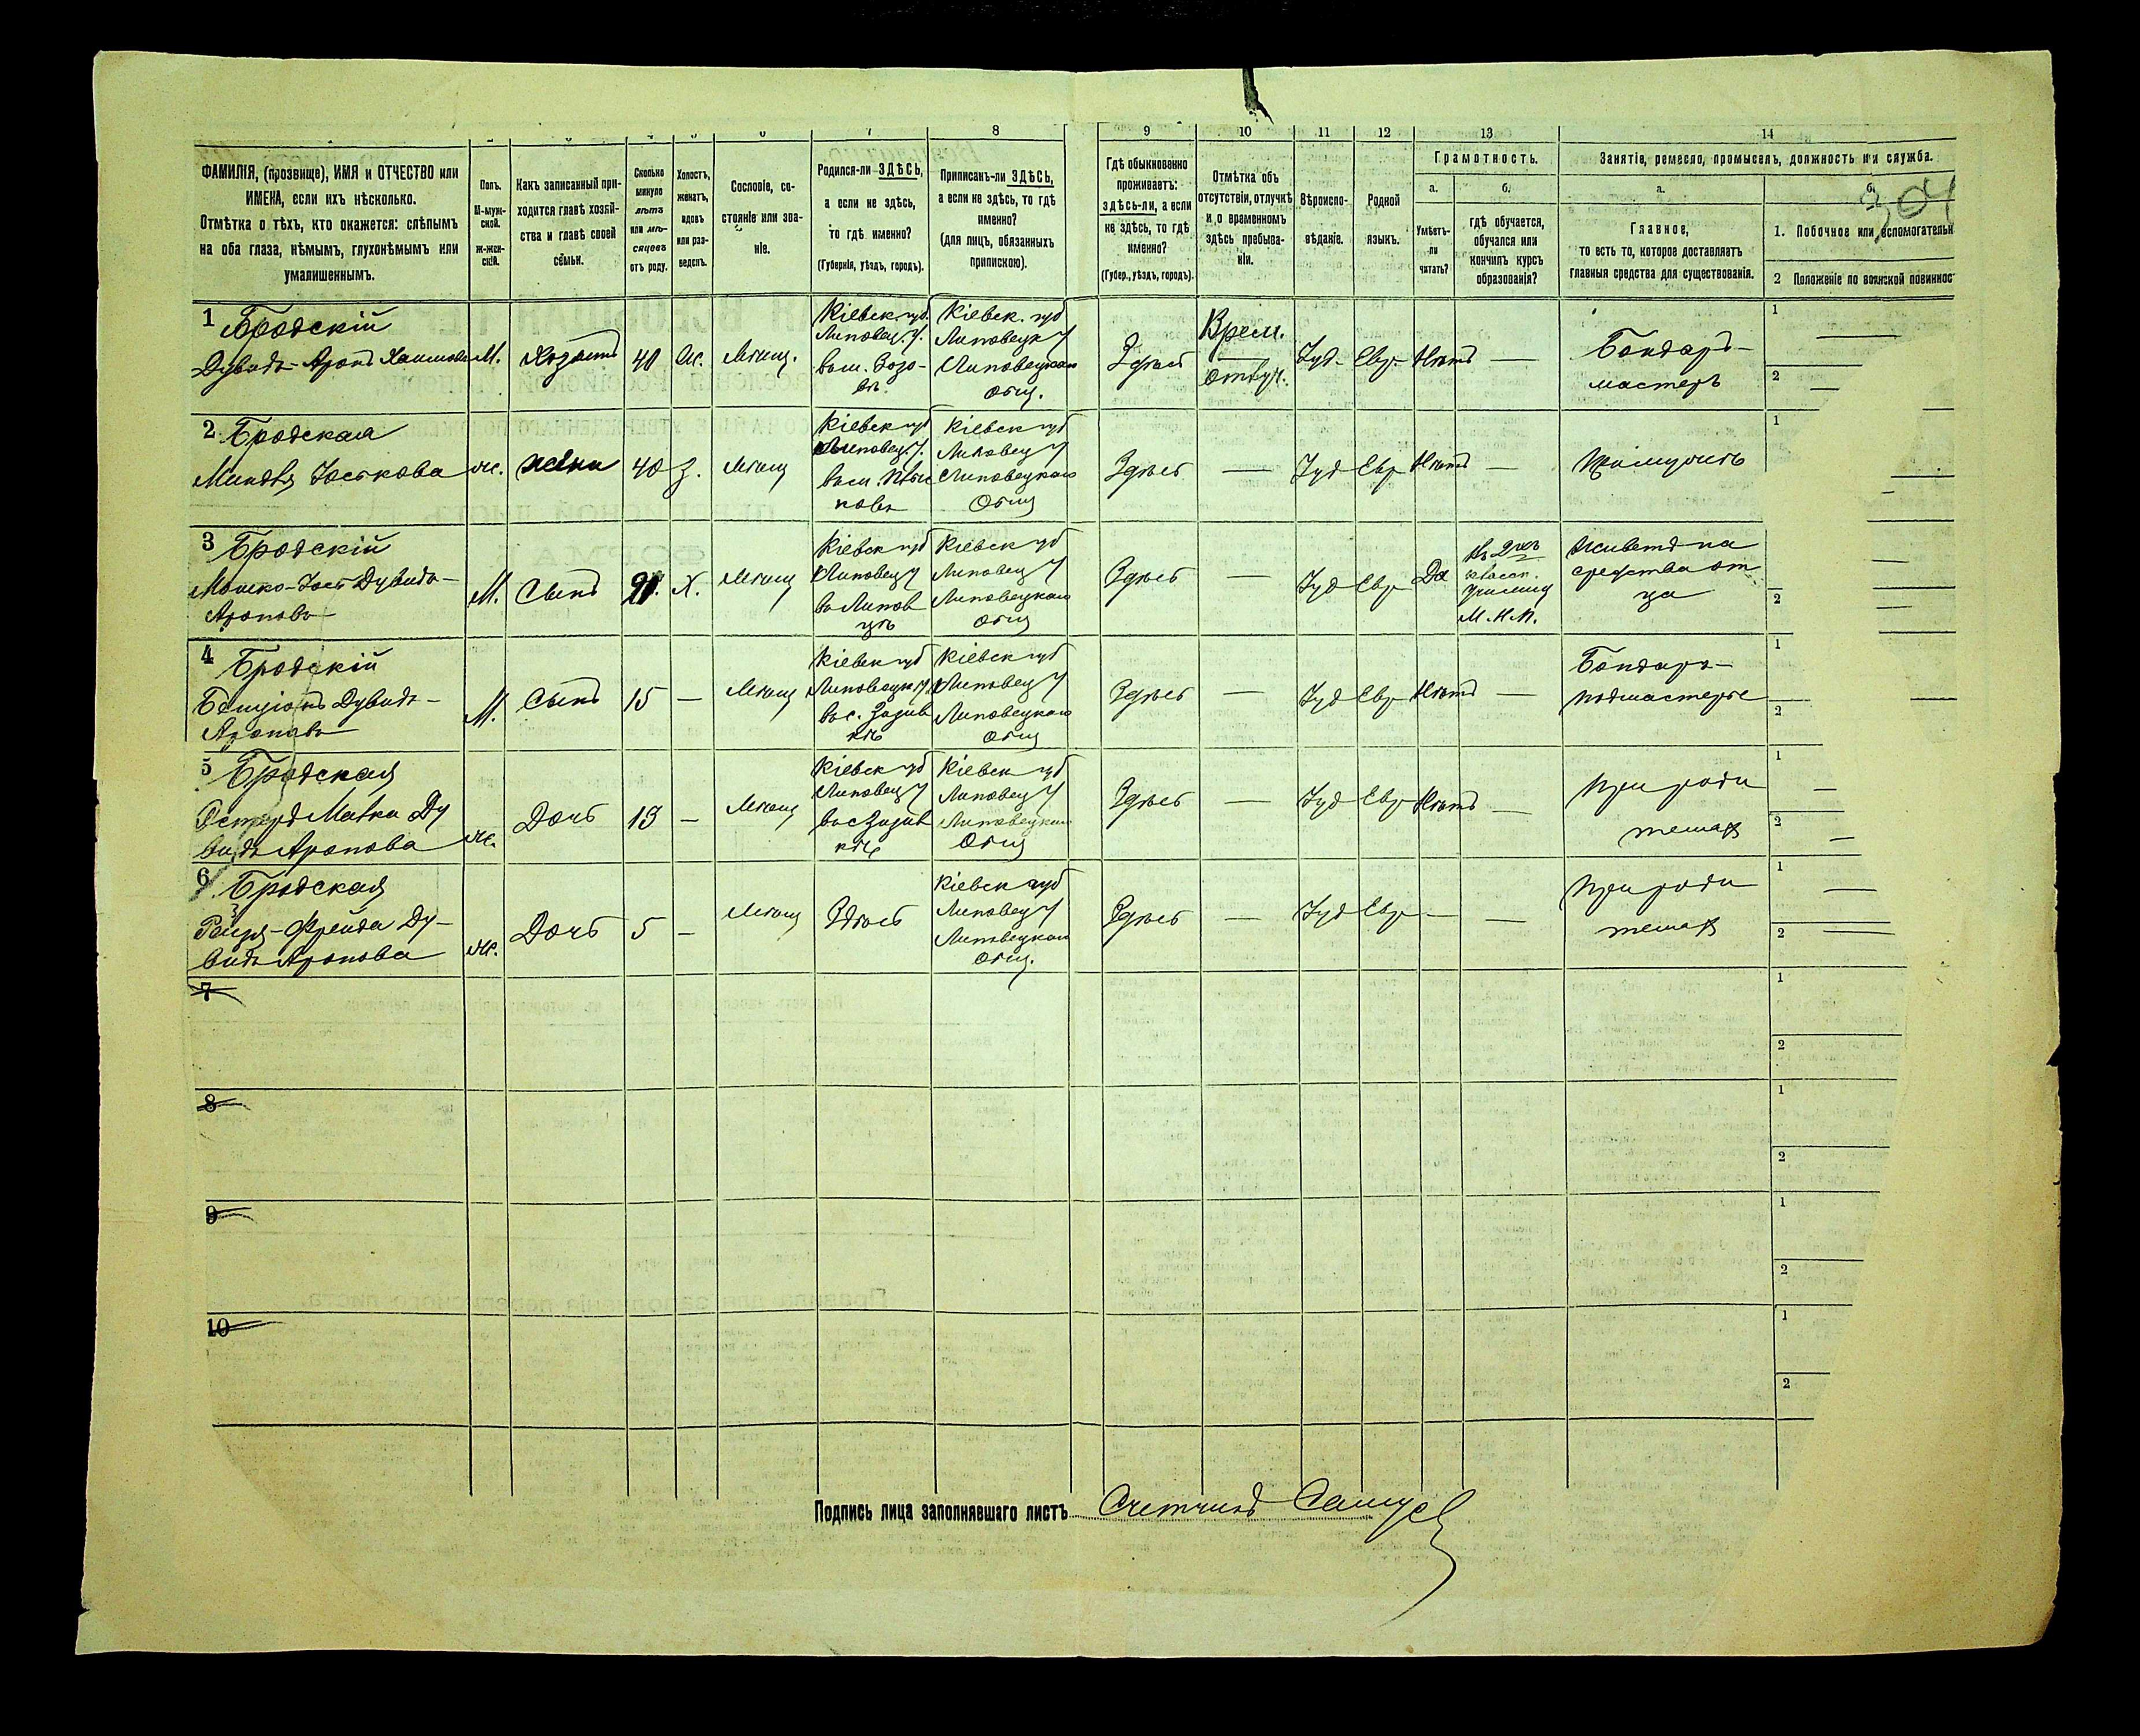 7 8 9 10 11 12 13 14
ФАМИЛІЯ, (прозвище), ИМЯ и ОТЧЕСТВО или
ИМЕНА, если ихъ нѣсколько.
Отмѣтка о тѣхъ, кто окажется: слѣпымъ
на оба глаза, нѣмымъ, глухонѣмымъ или
умалишеннымъ.
Полъ.
М-муж-
ской.
ж-жен-
скій.
Какъ записанный при-
ходится главѣ хозяй-
ства и главѣ своей
семьи.
Сколько
минуло
лѣтъ
или мѣ-
сяцевъ
отъ роду.
Холостъ,
женатъ,
вдовъ
или раз-
веденъ.
Сословіе, со-
стояніе или зва-
ніе.
Родился-ли ЗДѢСЬ,
а если не здѣсь,
то гдѣ именно?
(Губернія, уѣздъ, городъ).
Приписанъ-ли ЗДѢСЬ,
а если не здѣсь, то гдѣ
именно?
(для лицъ, обязанныхъ
припискою).
Гдѣ обыкновенно
проживаетъ:
здѣсь-ли, а если
не здѣсь, то гдѣ
именно?
(Губер., уѣздъ, городъ).
Отмѣтка объ
отсутствіи, отлучкѣ
и о временномъ
здѣсь пребыва-
ніи.
Вѣроиспо-
вѣданіе.
Родной
языкъ.
Грамотность.
а.
Умѣетъ-
ли
читать?
б.
гдѣ обучается,
обучался или
кончилъ курсъ
образованія?
Занятіе, ремесло, промыселъ, должность или служба.
а.
Главное,
то есть то, которое доставляетъ
главныя средства для существованія.
б.
1. Побочное или вспомогательн
2 Положеніе по воинской повиннос
1 Бродскій
Дувидъ-Аронъ
М.
Хозяинъ
Ж.
Мѣщ.
Кіевск. губ.
Липовец. у.
Кіевск. губ
Липовецк у
Липовецкаго
Общ.
Здѣсь
Врем.
Отлуч.
Іуд. Евр. Нѣтъ —
Бондарь-
мастеръ
1
2
2 Бродская
Миндля Хоськова
ж.
жена
40 З.
Мѣщ
Кіевск губ
Липовец. у.
Кіевск губ
Липовец у
Липовецкаго
Общ
Здѣсь —
Іуд Евр Нѣтъ —
При мужѣ
1
3 Бродскій
Дувидъ-
Ароновъ
М.
Сынъ
Х.
Мѣщ
Кіевск губ
Липовец у
въ Липов
цѣ
Кіевск губ
Липовец у
Липовецкаго
Общ
Здѣсь —
Іуд Евр Да
класс.
училищ
М. Н. П.
Живетъ на
средства от
ца
2
4 Бродскій
Бенціонъ Дувидъ-
Ароновъ
М.
Сынъ
15 —
Мѣщ
Кіевск губ
Липовецк у
Кіевск губ
Липовец у
Липовецкаго
Общ
Здѣсь —
Іуд Евр Нѣтъ —
Бондарь-
подмастерье
1
2
5 Бродская
Ду
видъ Аронова
ж.
Дочь
13 —
Мѣщ
Кіевск губ
Липовец у
Кіевск губ
Липовец у
Липовецкаго
Общ
Здѣсь —
Іуд Евр Нѣтъ —
При роди
теляхъ
1
2
6 Бродская
Фрейда Ду-
видъ Аронова
ж.
Дочь
5 —
Мѣщ
Здѣсь
Кіевск губ
Липовец у
Липовецкаго
Общ.
Здѣсь —
Іуд Евр — —
При роди
теляхъ
1
2
7
1
2
8
1
2
9
1
2
10
1
2
Подпись лица заполнявшаго листъ Счетчикъ